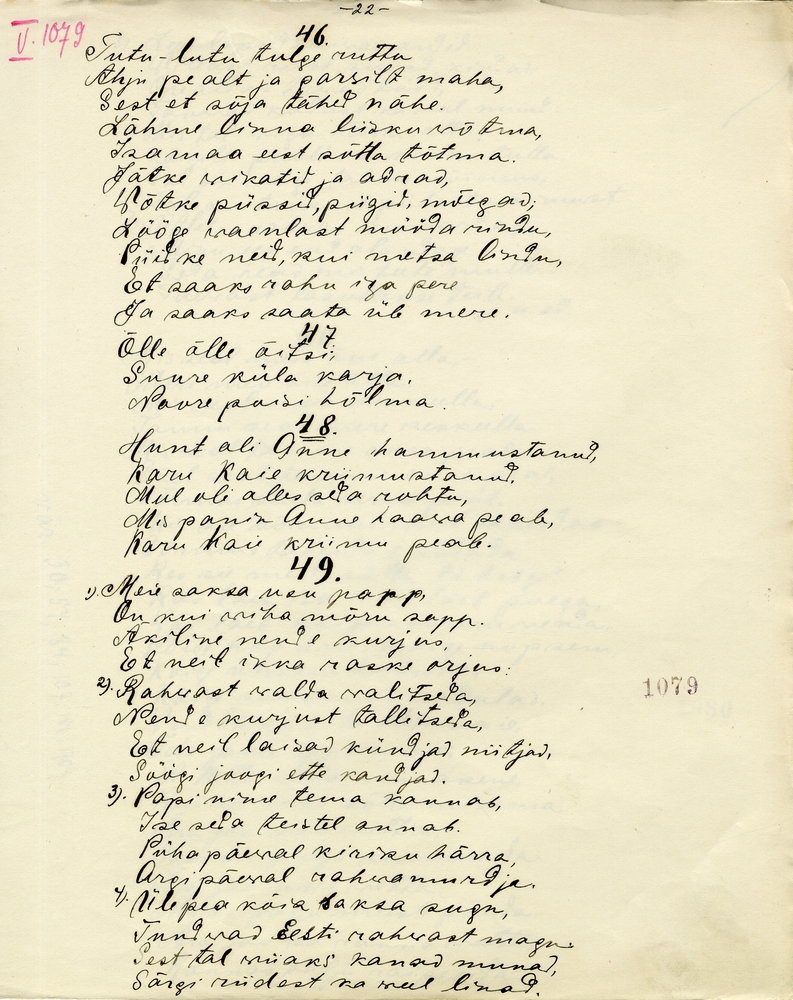 -22-
V. 1079
46.
Tutu-lutu tulge ruttu
Ahju pealt ja parsilt maha,
Sest et sõja tähed nähe.
Lähme linna liisku wõtma,
Isamaa eest sõtta tõtma.
Jätke wikatid ja adrad,
Wõtke püssid, püigid, mõegad;
Lööge waenlast mööda rindu,
Püidke neid, kui metsa lindu,
Et saaks rahu iga pere
Ja saaks saata üle mere.
47
Õlle õlle õitsi;
Suure küla karja,
Noore poisi hõlma.
48.
Hunt oli Anne hammustanud,
Karu Kaie kriimustanud.
Mul oli alles seda rohtu,
Mis panin Anne haawa peale,
Karu Kaie kriimu peale.
49.
1). Meie saksa usu papp,
On kui wiha mõru sapp.
Äkiline nende kurjus,
Et neil ikka raske orjus:
2). Rahwast walda walitseda,
Nende kurjust tallitseda,
Et neil laisad kündjad niitjad,
Söögi joogi ette kandjad.
3). Papi nime tema kannab,
Ise seda teistel annab.
Püha päewal kiriku härra,
Argi päewal rahwamurdja.
4). Ülepea kõia saksa sugu,
Tundwad Eesti rahwast magu.
Sest tal wiiaks kanad munad,
Särgi riidest ka weel linad.
1079